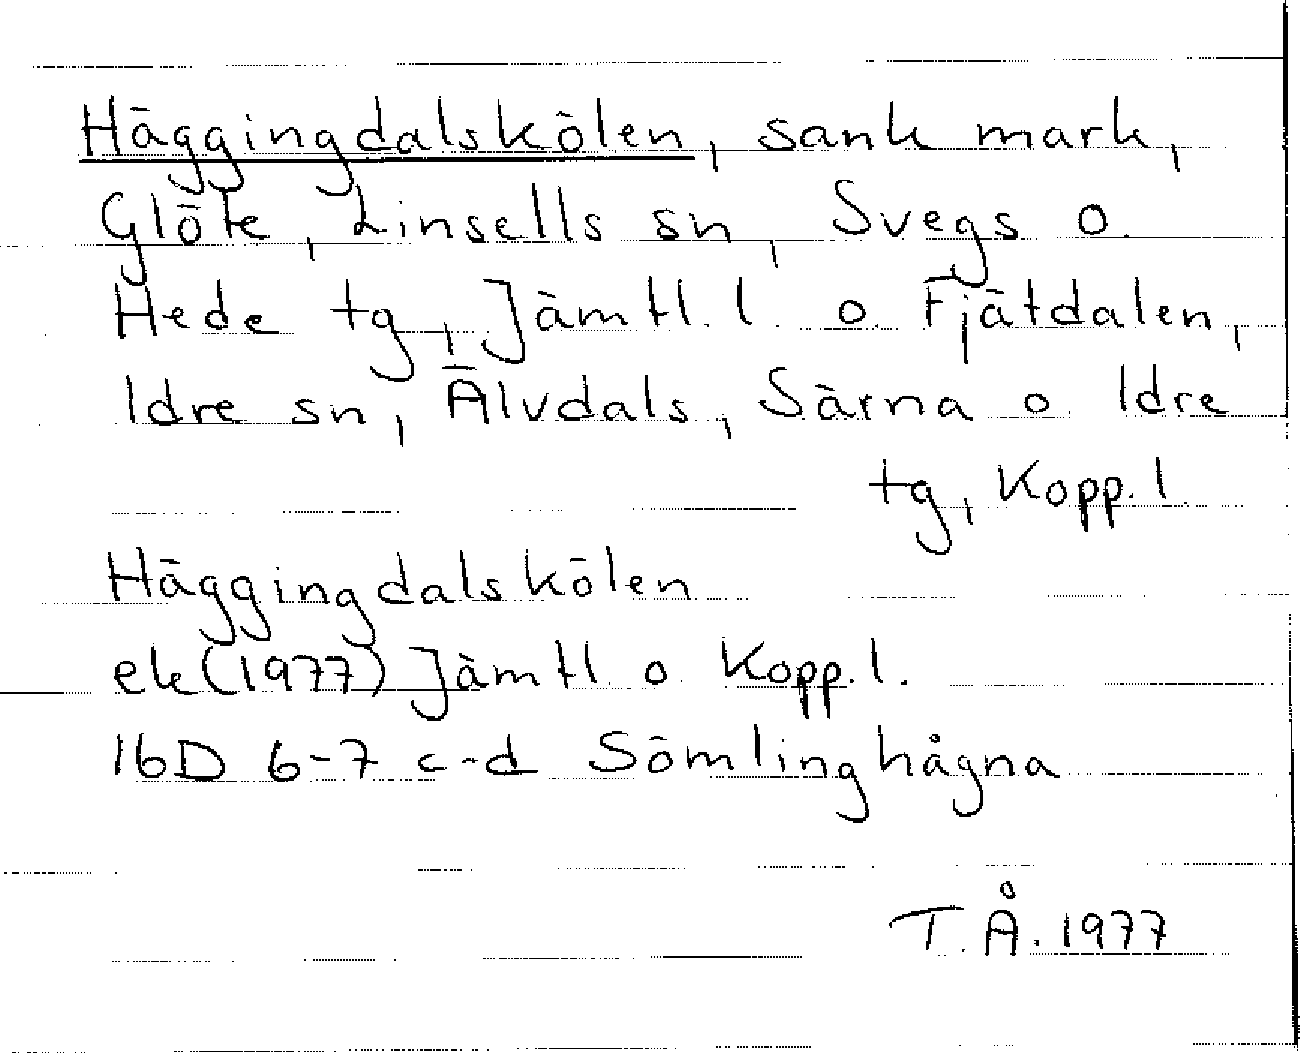 Häggingdalskölen, sank mark,
Glöte, Linsells sn, Svegs o.
Hede tg, Jämtl. l. o. Fjätdalen,
Idre sn, Älvdals, Särna o Idre
tg, Kopp. l.
Häggingdalskölen
ek (1977) Jämtl o. Kopp. l.
16D 6-7 c-d Sömlinghågna
T. Å. 1977